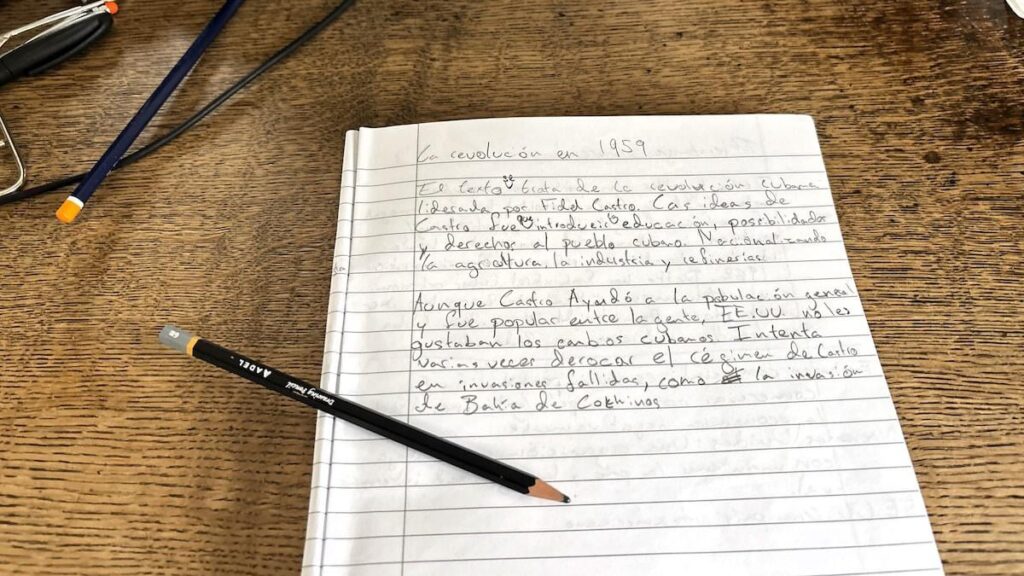 La revolución en 1959
El texto se trata de la revolución cubana
liderada por Fidel Castro. Las ideas de
Castro fue que introducir educación, posibilidades
y derechos al pueblo cubano. Nacionalizando
la agricultura, la industria y refinerías.
Aunque Castro Ayudó a la população general
y fue popular entre la gente, EE.UU. no les
gustaban los cambios cubanos. Intenta
varias veces derocar el régimen de Castro
en invasiones fallidas, como la invasión
de Bahía de Cokhinos
AADEL
Drawing Pencil